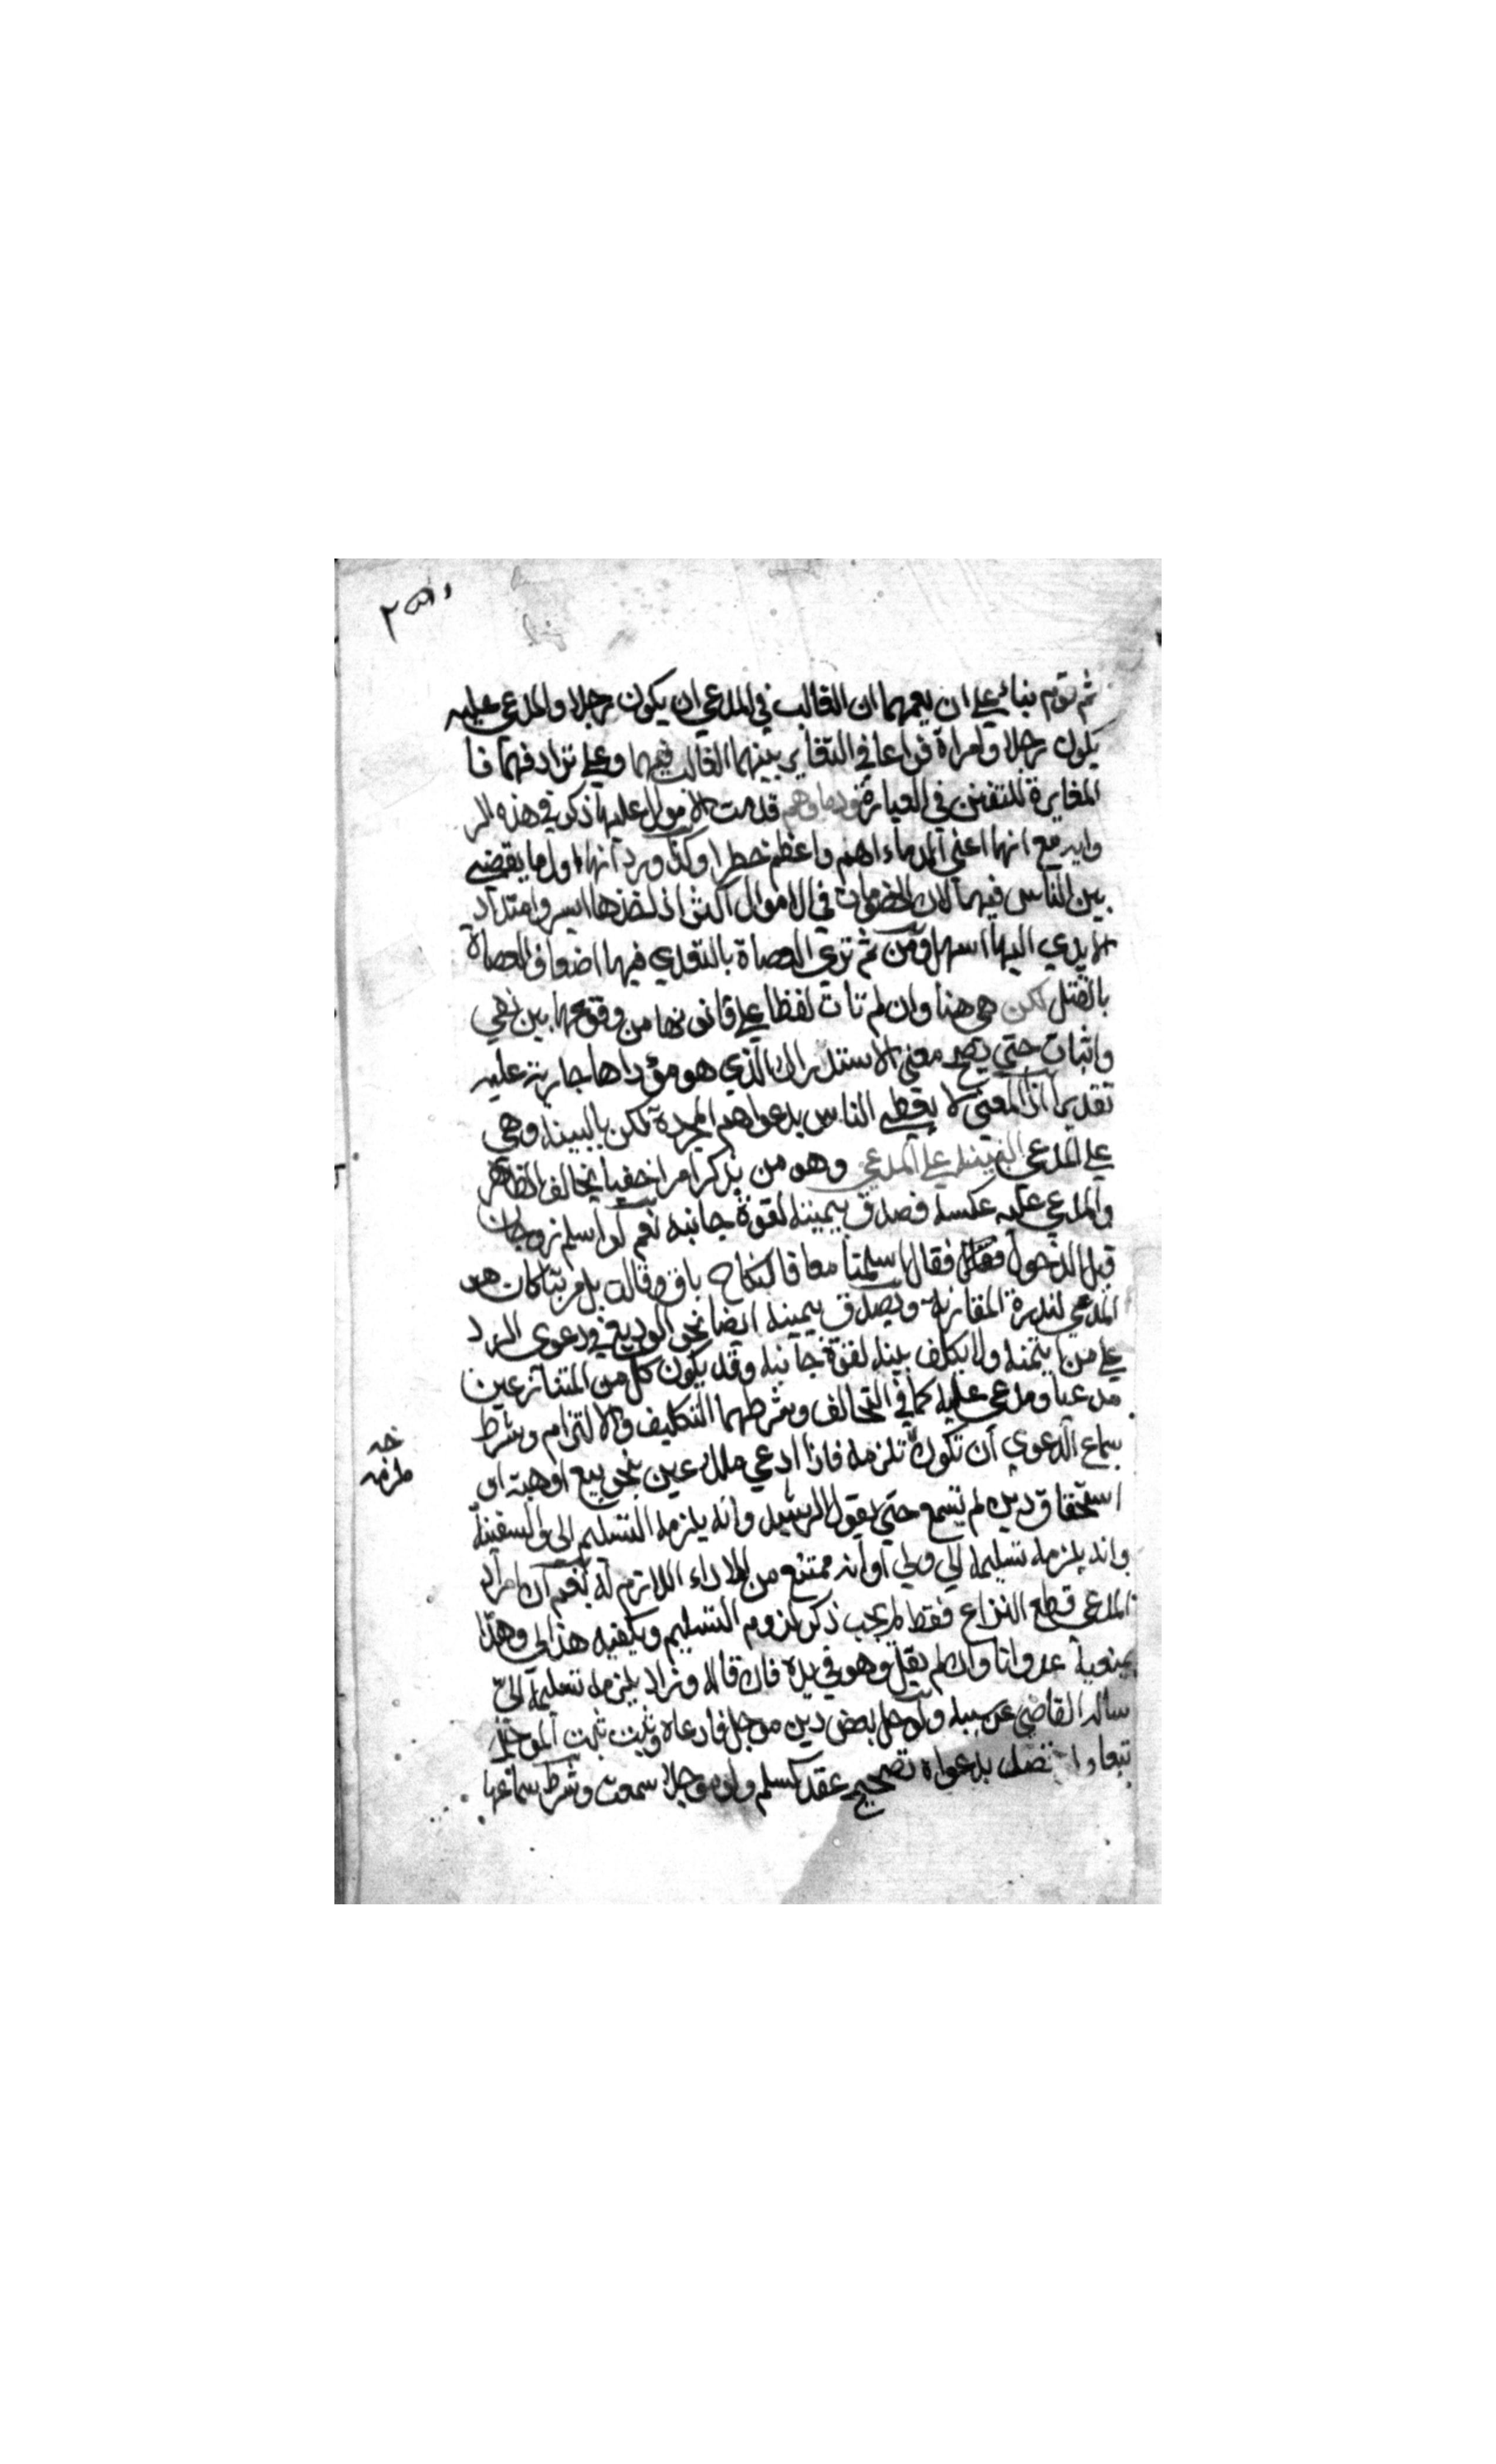 ثم قوم بناء على ان يعمهما ان الغالب في المدعي ان يكون رجلا والمدعى عليه
يكون رجلا وامراة فراعا في التغاير بينهما الغالب فيهما وعلى ترادفهما فا
المغايرة للتفنن في العبارة ودماوهم قدمت الاموال عليها ذكرت في هذه الر
واية مع انها اعني الدماء اهم واعظم خطرا وكذا ورد انها اول ما يقضى
بين الناس فيها لان الخصومات في الاموال اكثر اذ اخذها ايسر وامتداد
الايدي اليها اسهل ومن ثم ترى العصاة بالتعدي فيها اضعاف العصاة
بالقتل لكن هي هنا وان لم تات لفظا على قانونها من وقوعها بين نفي
واثبات حتى يصح معنى الاستدراك الذي هو مؤداها جارية عليه
تقديرا اذ المعنى لا يعطى الناس بدعواهم المجردة لكن بالبينة وهي
على المدعي البينة على المدعي وهو من يذكر امرا خفيا يخالف الظاهر
والمدعى عليه عكسه فصدق بيمينه لقوة جانبه نعم لو اسلم زوجان
قبل الدخول فقال اسلمنا معا فالنكاح باق وقالت بل مرتبا كان هو
المدعي لندرة المقارنة ويصدق بيمينه ايضا نحو الوديع في دعوى الرد
على من ائتمنه ولا يكلف بينة لقوة جانبه وقد يكون كل من المتنازعين
مدعيا ومدعى عليه كما في التحالف وشرطهما التكليف والالتزام وشرط
سماع الدعوى ان تكون تلزمه فاذا ادعى ملك عين بنحو بيع او هبة او
استحقاق دين لم تسمع حتى يقول الرشيد وانه يلزمه التسليم الي والسفيه
وانه يلزمه تسليمه الى وليي او انه ممتنع من الاداء اللازم له نعم ان اراد
المدعي قطع النزاع فقط لم يجب ذكر لزوم التسليم ويكفيه هذا لي وهذا
يمنعنيه عدوانا وان لم يقل وهو في يده فان قاله وزاد يلزمه تسليمه الي
ساله القاضي عن سببه ولو حل بعض دين موجل فادعاه وثبت ثبت الموجل
تبعا بدعواه تصحيح عقد كسلم ولو موجلا سمعت وشرط سماعها